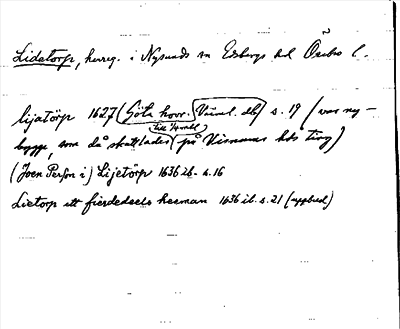 Lidetorp, herrg. i Nysunds sn Edsbergs hd Örebro l.
lijatörp 1627 (Göta hovr. Värml. db) s. 19 (var ny-
till 1/4 mtl
bygge, som då skattlades på Visnums hds ting)
(Joen Perſon i) Lijetörp 1636 ib. s. 16
Lietorp ett fierdedeels heeman 1636 ib. s. 21 (uppbud)